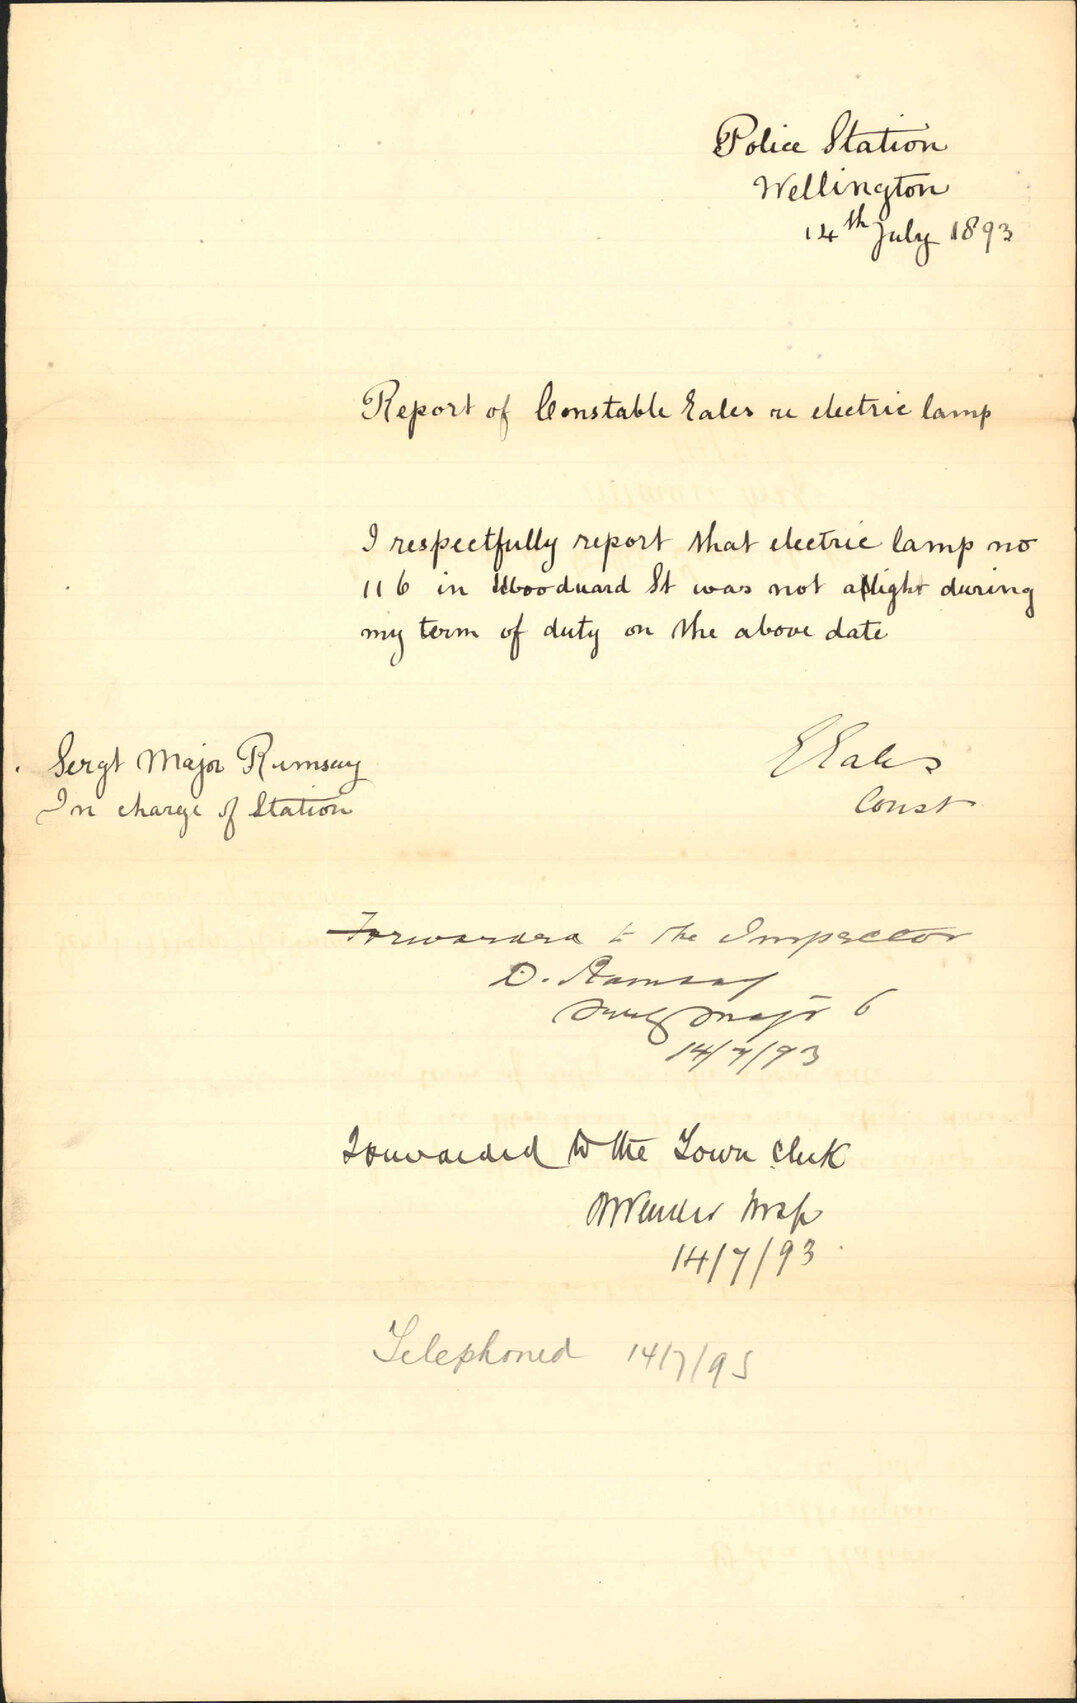 Police Station
Wellington
14th July 1893
Report of Constable Eales re electric lamp
I respectfully report that electric lamp no
116 in Woodward St was not alight during
my term of duty on the above date
E Eales
Const
Sergt Major Ramsay
In charge of Station
Forwarded to the Inspector
D. Ramsay
Major 6
14/7/93
Forwarded to the Town Clerk
Pender Insp
14/7/93
Telephoned 14/7/93